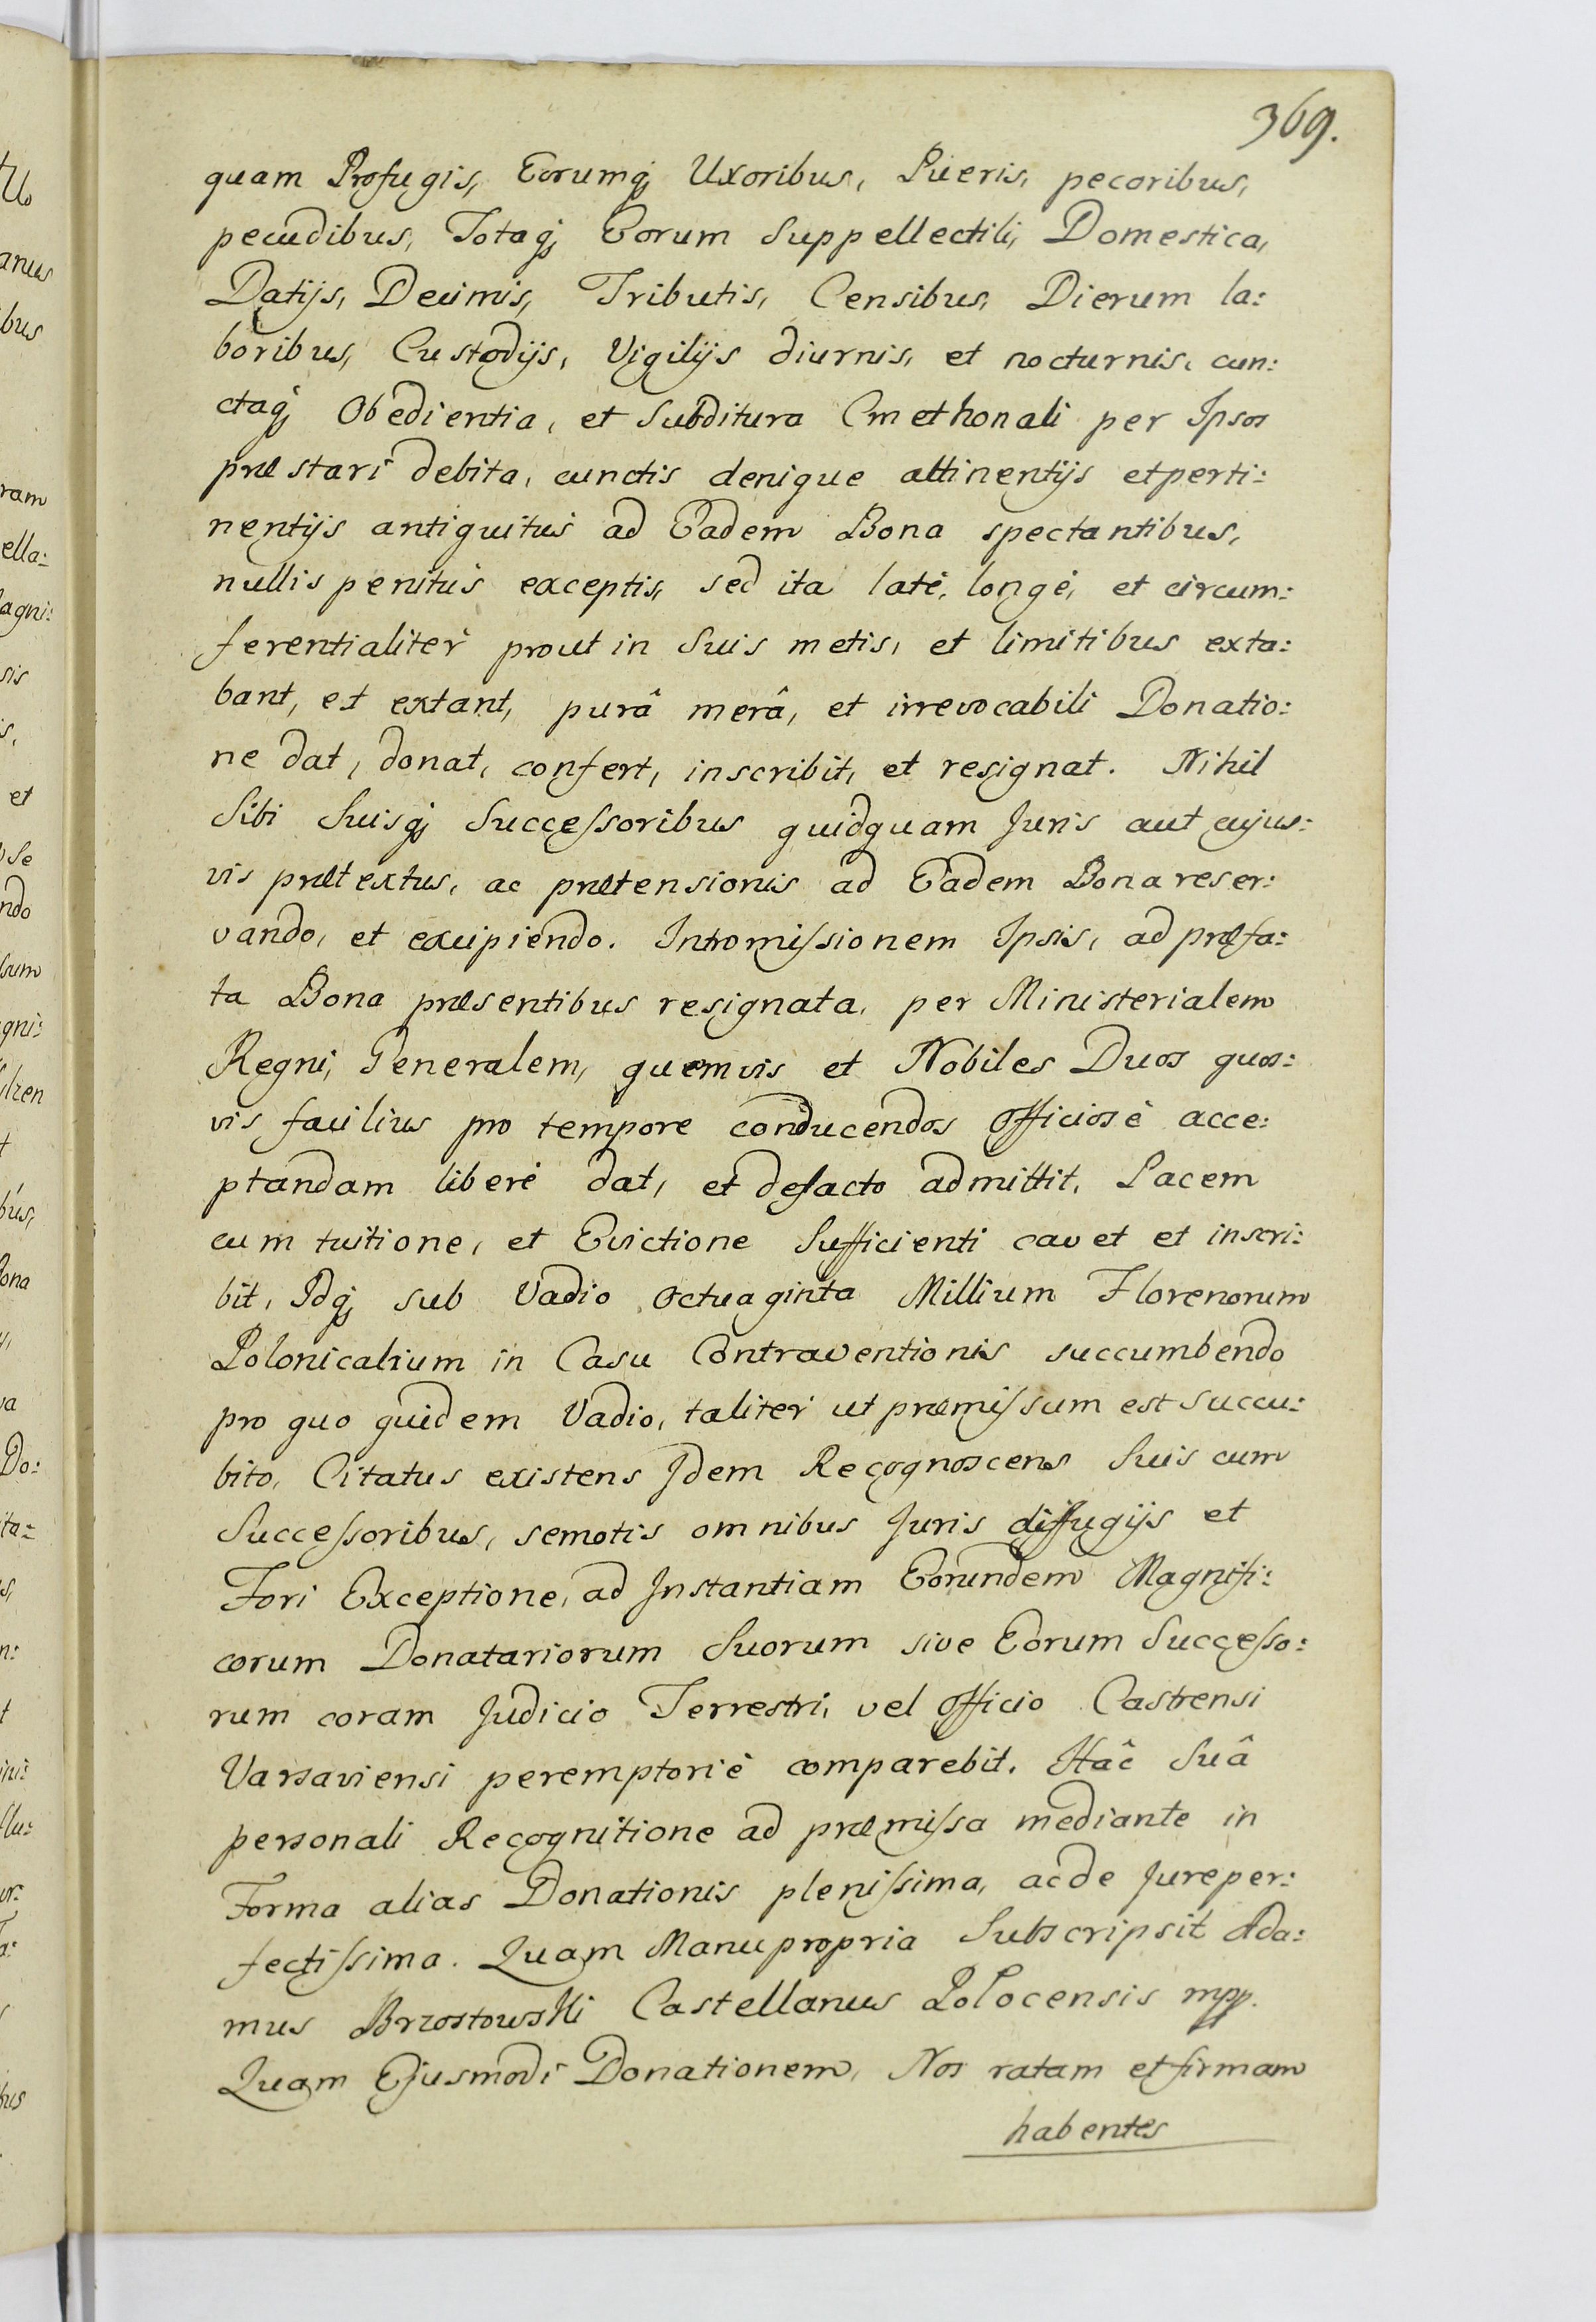 369.
quam Profugis, Eorumq; Uxoribus, Pueris, pecoribus,
pecudibus, Totaq; Eorum Suppellectili, Domestica,
Datijs, Decimis, Tributis, Censibus, Dierum la:
boribus, Custodijs, Vigilijs diurnis, et nocturnis, cun:
ctaq; Obedientia, et Subditura Cmethonali per Ipsos
præstari debita, cunctis denique attinentijs et perti:
nentijs antiquitus ad Eadem Bona spectantibus,
nullis penitus exceptis, sed ita latè, longè, et circum:
ferentialiter prout in Suis metis, et limitibus exta:
bant, et extant, purâ merâ, et irrevocabili Donatio:
ne dat, donat, confert, inscribit, et resignat. Nihil
Sibi Suisq; Succeſsoribus quidquam Juris aut cujus:
vis prætextus, ac prætensionis ad Eadem Bona reser:
vando, et excipiendo. Intromiſsionem Ipsis, ad præfa:
ta Bona præsentibus resignata, per Ministerialem
Regni, Generalem, quemvis et Nobiles Duos quos:
vis facilius pro tempore conducendos Officiosè acce:
ptandam liberè dat, et defacto admittit, Pacem
cum tuitione, et Evictione Sufficienti cavet et inscri:
bit, Idq; sub Vadio Octuaginta Millium Florenorum
Polonicalium in Casu Contraventionis succumbendo
pro quo quidem Vadio, taliter ut præmiſsum est succu:
bito, Citatus existens Idem Recognoscens Suis cum
Succeſsoribus, semotis omnibus Juris diffugijs et
Fori Exceptione, ad Instantiam Eorundem Magnifi:
corum Donatariorum Suorum sive Eorum Succeſso:
rum coram Judicio Terrestri, vel Officio Castrensi
Varsaviensi peremptoriè comparebit. Hâc Suâ
personali Recognitione ad præmiſsa mediante in
Forma alias Donationis pleniſsima, ac de Jure per:
fectiſsima. Quam Manu propria Subscripsit Ada:
mus Brzostowski Castellanus Polocensis mpp.
Quam Ejusmodi Donationem, Nos ratam et firmam
habentes